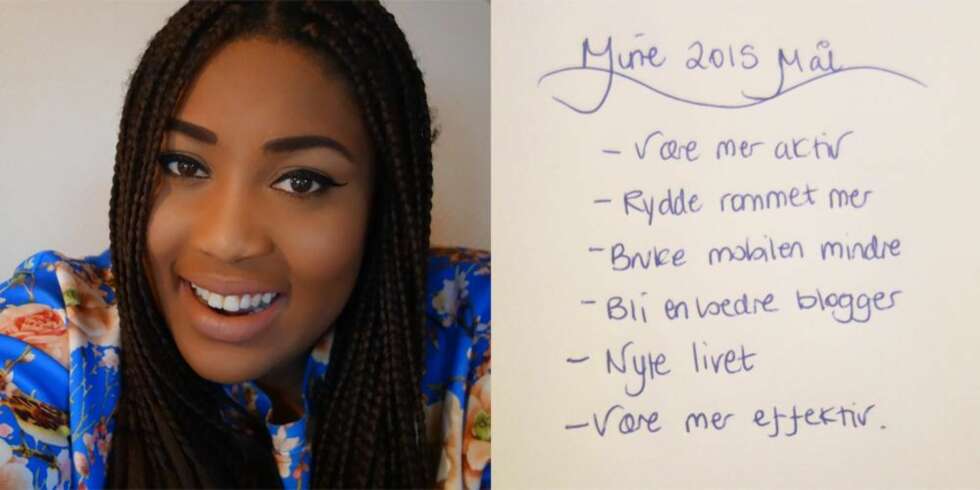 Mine 2015 Mål
- Være mer aktiv
- Rydde rommet mer
- Bruke mobilen mindre
- Bli en bedre blogger
- Nyte livet
- Være mer effektiv.